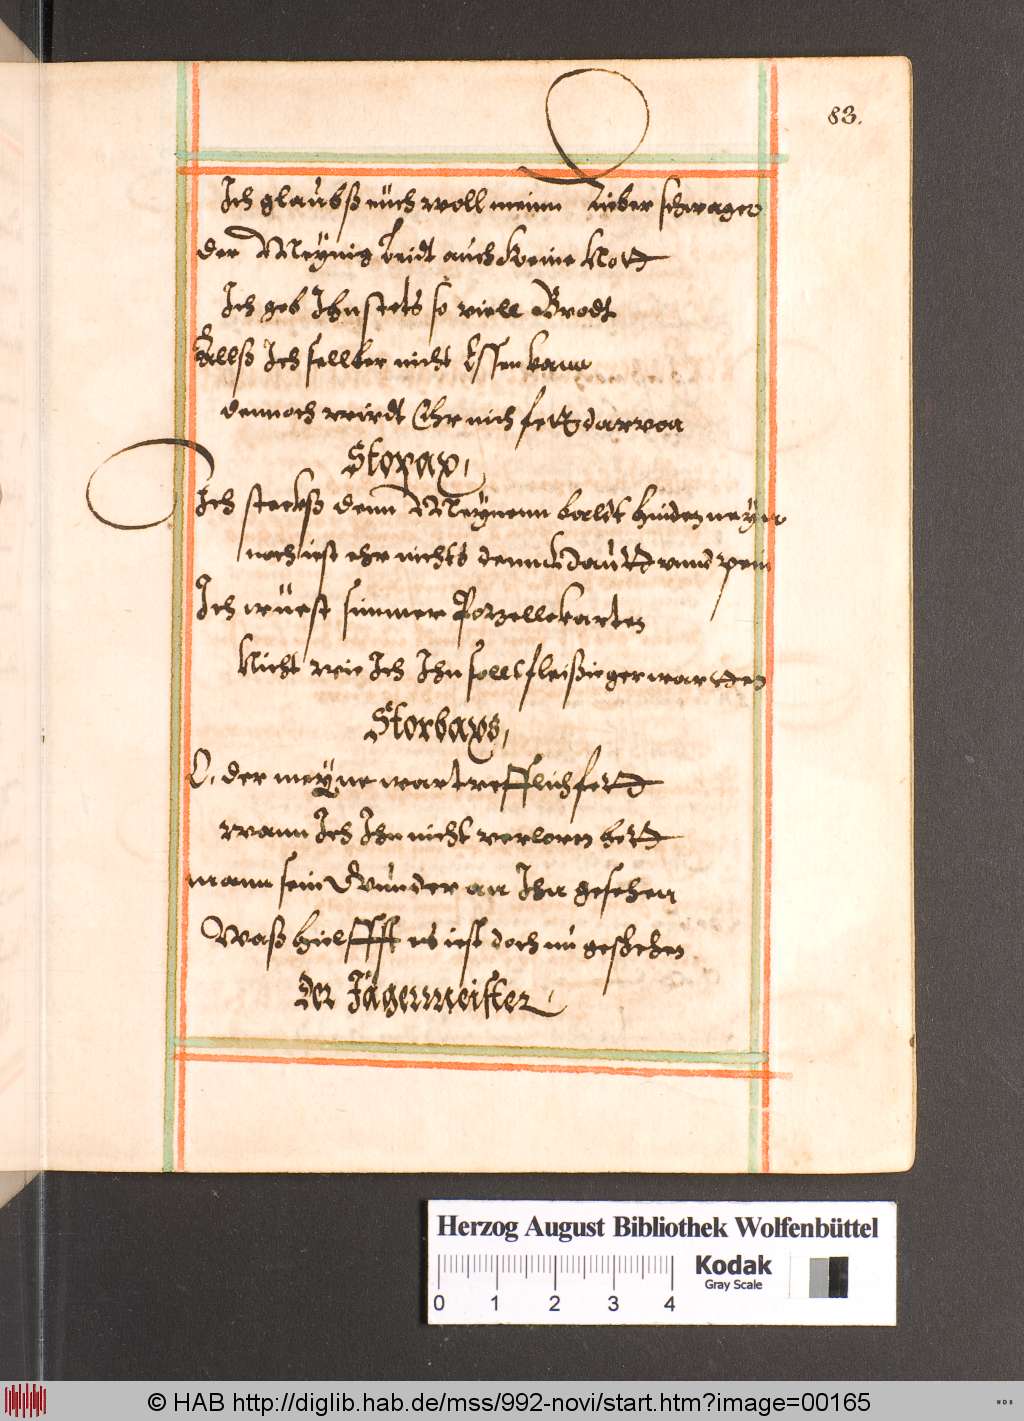 83.
Ich glaubß euch woll meinn Lieber schwager
der Meynig leidt auch keine Nott
Ich geb Ihn stets so viell Brodt
Allß Ich sellber nicht Essen kann
dennoch wirdt Ehr nich fett darvon
Stopax,
Ich steckß denn Meynenn baldt hinden neyn
noch iest ehr nichts denn haudt unnd pein
Ich wüest immer Porzellekarten
Nicht wie Ich Ihn soll fleißiger wartten
Storbaxs,
O, der meyne war trefflich fett
wann Ich Ihn nicht verloren hett
mann sein Wunder an Ihn gesehen
Waß hielffft es iest doch nu geschehen
Der Jägermeister,
Herzog August Bibliothek Wolfenbüttel
Kodak
Gray Scale
0 1 2 3 4
© HAB http://diglib.hab.de/mss/992-novi/start.htm?image=00165